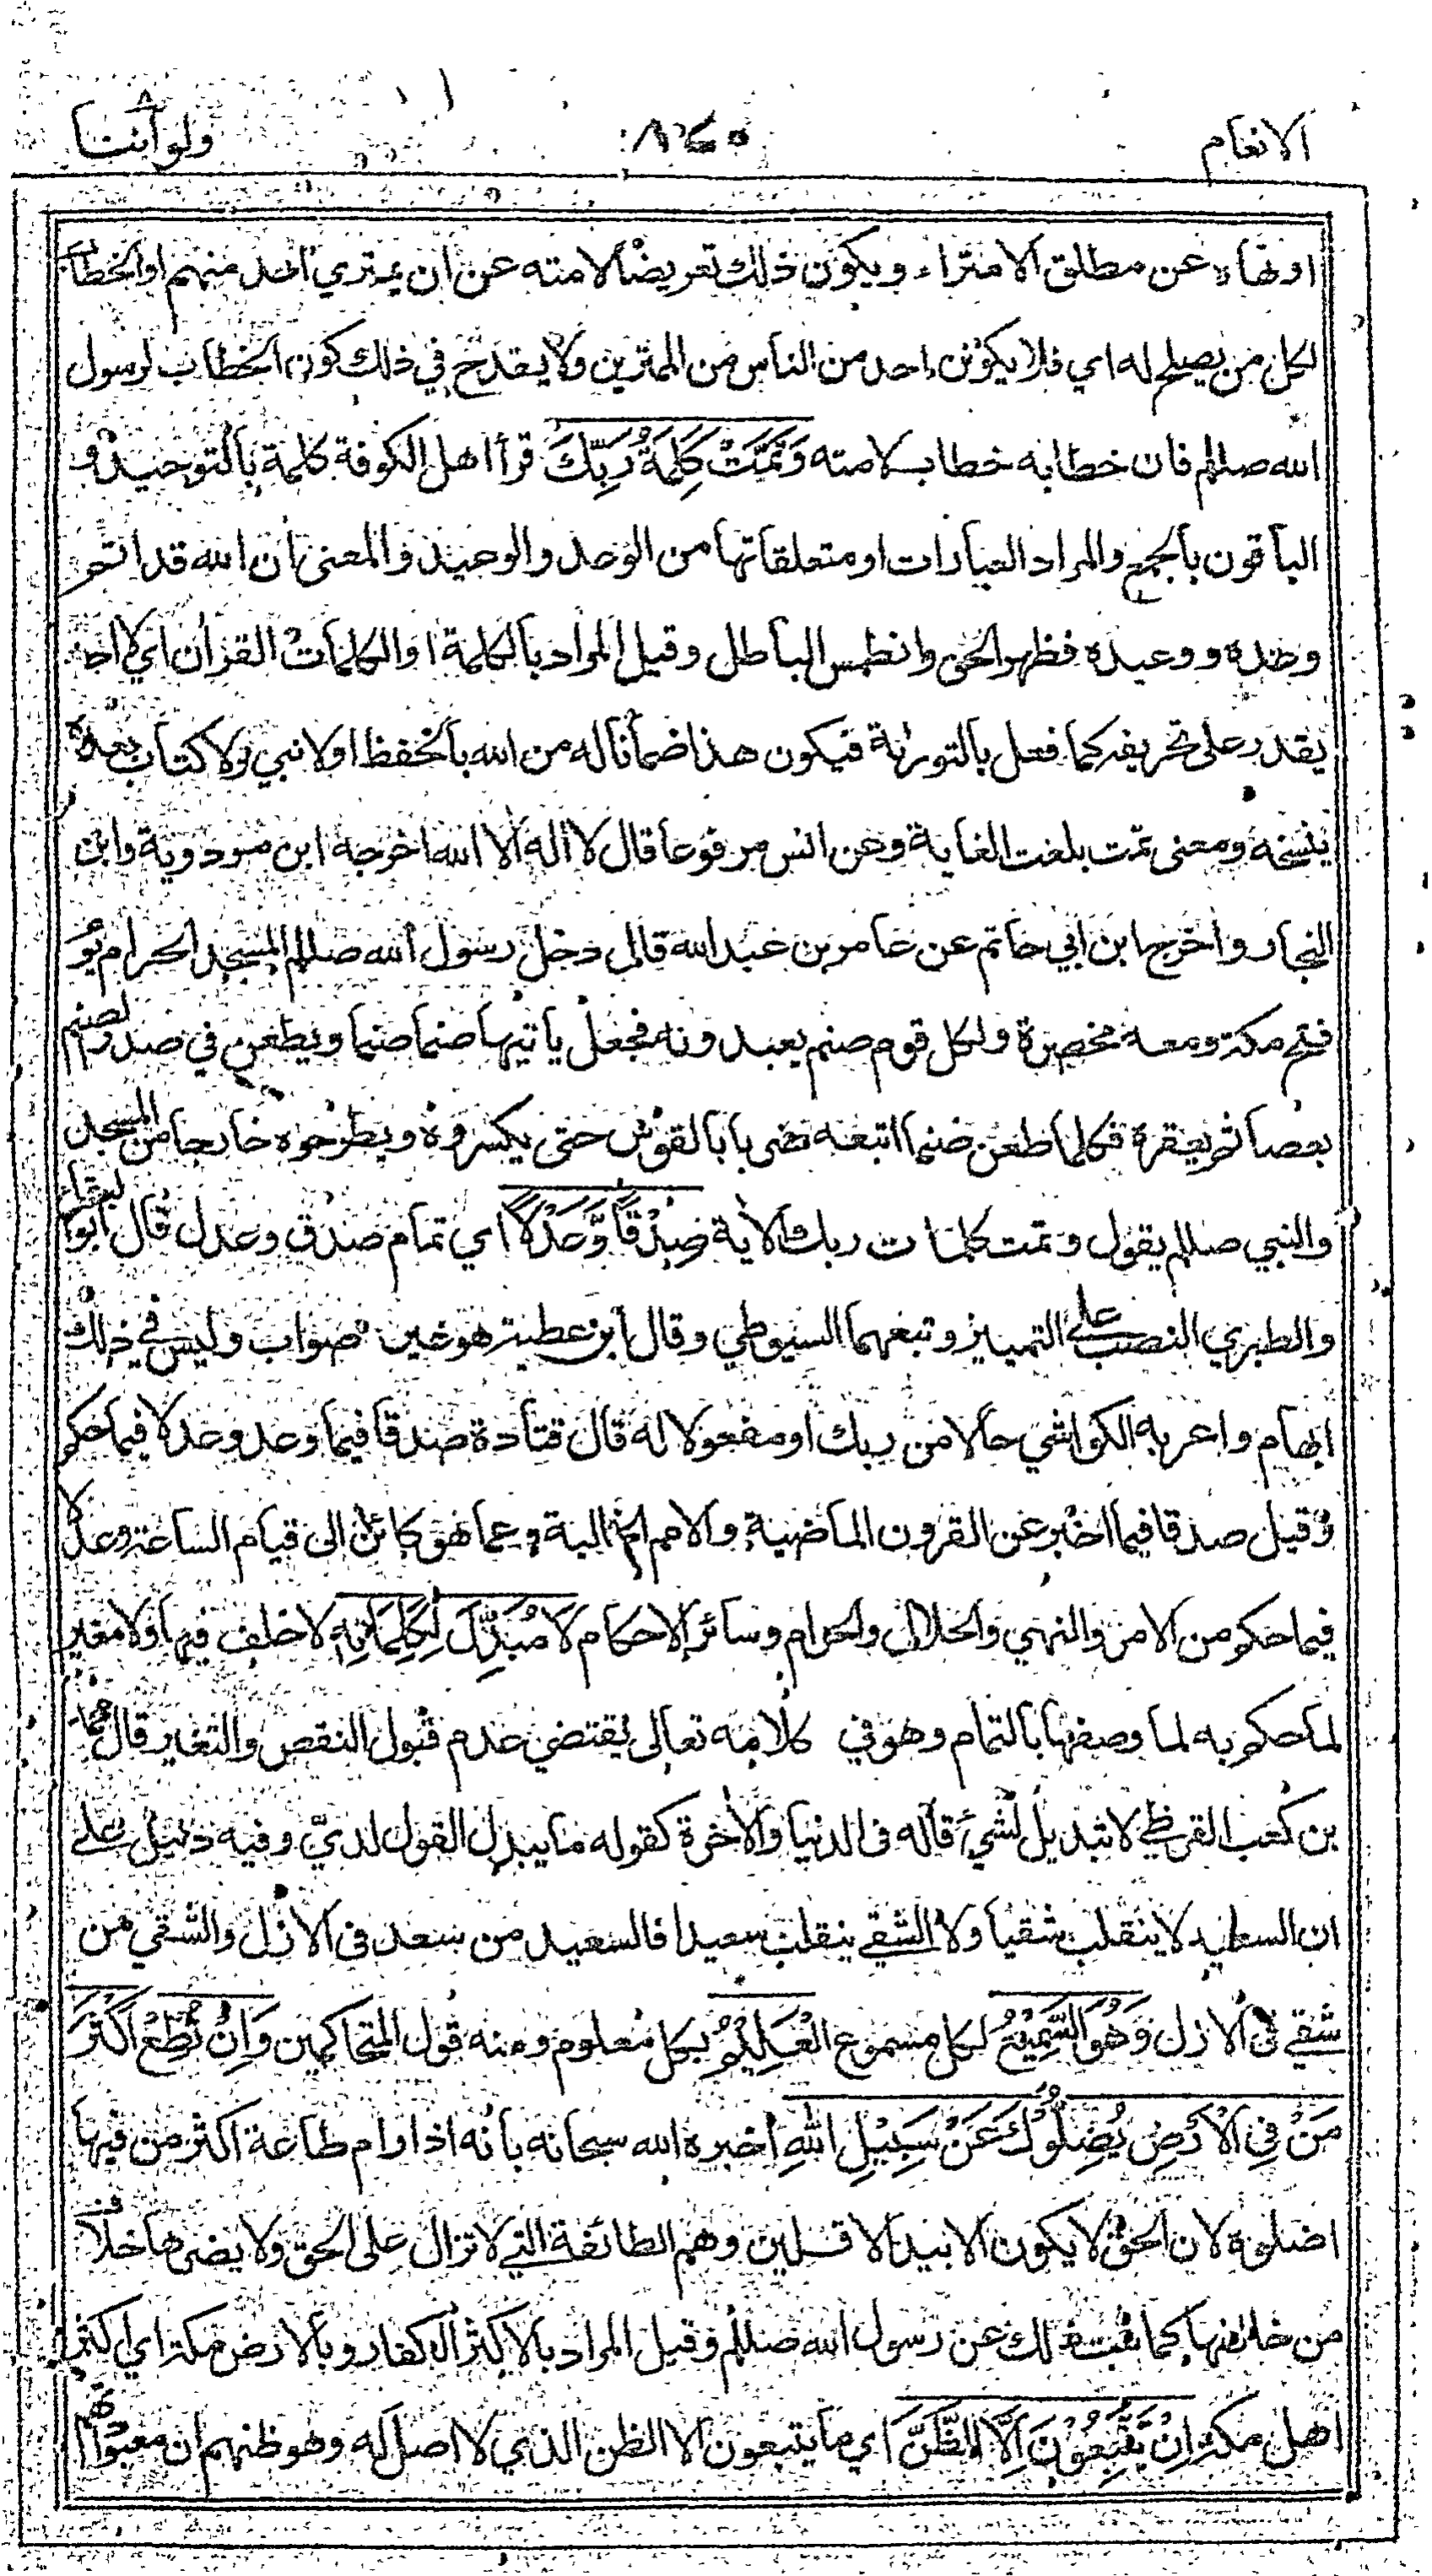 الانعام ولو اننا ٨
او نهاه عن مطلق الامتراء ويكون ذلك تعريضا لامته عن ان يمتري احد منهم او الخطاب
لكل من يصلح له اي فلا يكونن احد من الناس من الممترين ولا يقدح في ذلك كون الخطاب لرسول
الله صللم فان خطابه خطاب لامته وَتَمَّتْ كَلِمَةُ رَبِّكَ قرأ اهل الكوفة كلمة بالتوحيد و
الباقون بالجمع والمراد العبارات او متعلقاتها من الوعد والوعيد والمعنى ان الله قد اتم
وعده ووعيده فظهر الحق وانطمس الباطل وقيل المراد بالكلمة او الكلمات القران اي لا احد
يقدر على تحريفه كما فعل بالتوراة فيكون هذا ضمانا له من الله بالحفظ او لا نبي ولا كتاب بعده
ينسخه ومعنى تمت بلغت الغاية وعن انس مرفوعا قال لا اله الا الله اخرجه ابن مردوية وابن
النجار واخرج ابن ابي حاتم عن عامر بن عبد الله قال دخل رسول الله صللم المسجد الحرام يوم
فتح مكة ومعه مخصرة ولكل قوم صنم يعبدونه فجعل ياتيها صنما صنما ويطعن في صدر الصنم
بعصا ثم يعقره فكلما طعن صنما اتبعه ضربا بالقوس حتى يكسروه ويطرحوه خارجا من المسجد
والنبي صللم يقول وتمت كلمات ربك الأية صِدْقًا وَّعَدْلًا اي تمام صدق وعدل قال ابو البقاء
والطبري النصب على التمييز وتبعهما السيوطي وقال ابن عطية هو غير صواب وليس في ذلك
ابهام واعربه الكواشي حالا من ربك او مفعولا له قال قتادة صدقا فيما وعد وعدلا فيما حكم
وقيل صدقا فيما اخبر عن القرون الماضية والامم الخالية وعما هو كائن الى قيام الساعة وعدلا
فيما حكم من الامر والنهي والحلال والحرام وسائر الاحكام لَا مُبَدِّلَ لِكَلِمَاتِهِ لا خلف فيها ولا مغير
لما حكم به لما وصفها بالتمام وهو في كلامه تعالى يقتضي عدم قبول النقص والتغير قال محمد
بن كعب القرظي لا تبديل لشيء قاله في الدنيا والأخرة كقوله ما يبدل القول لديّ وفيه دليل على
ان السعيد لا ينقلب شقيا ولا الشقي ينقلب سعيدا فالسعيد من سعد في الازل والشقي من
شقي في الازل وَهُوَ السَّمِيْعُ لكل مسموع الْعَلِيْمُ بكل معلوم ومنه قول المتحاكمين وَاِنْ تُطِعْ اَكْثَرَ
مَنْ فِي الْاَرْضِ يُضِلُّوْكَ عَنْ سَبِيْلِ اللهِ اخبره الله سبحانه بانه اذا رام طاعة اكثر من فيها
اضلوه لان الحق لا يكون الا بيد الاقلين وهم الطائفة التي لا تزال على الحق ولا يضرها خلاف
من خالفها كما ثبت ذلك عن رسول الله صللم وقيل المراد بالاكثر الكفار وبالارض مكة اي اكثر
اهل مكة اِنْ يَتَّبِعُوْنَ اِلَّا الظَّنَّ اي ما يتبعون الا الظن الذي لا اصل له وهو ظنهم ان معبوداتهم